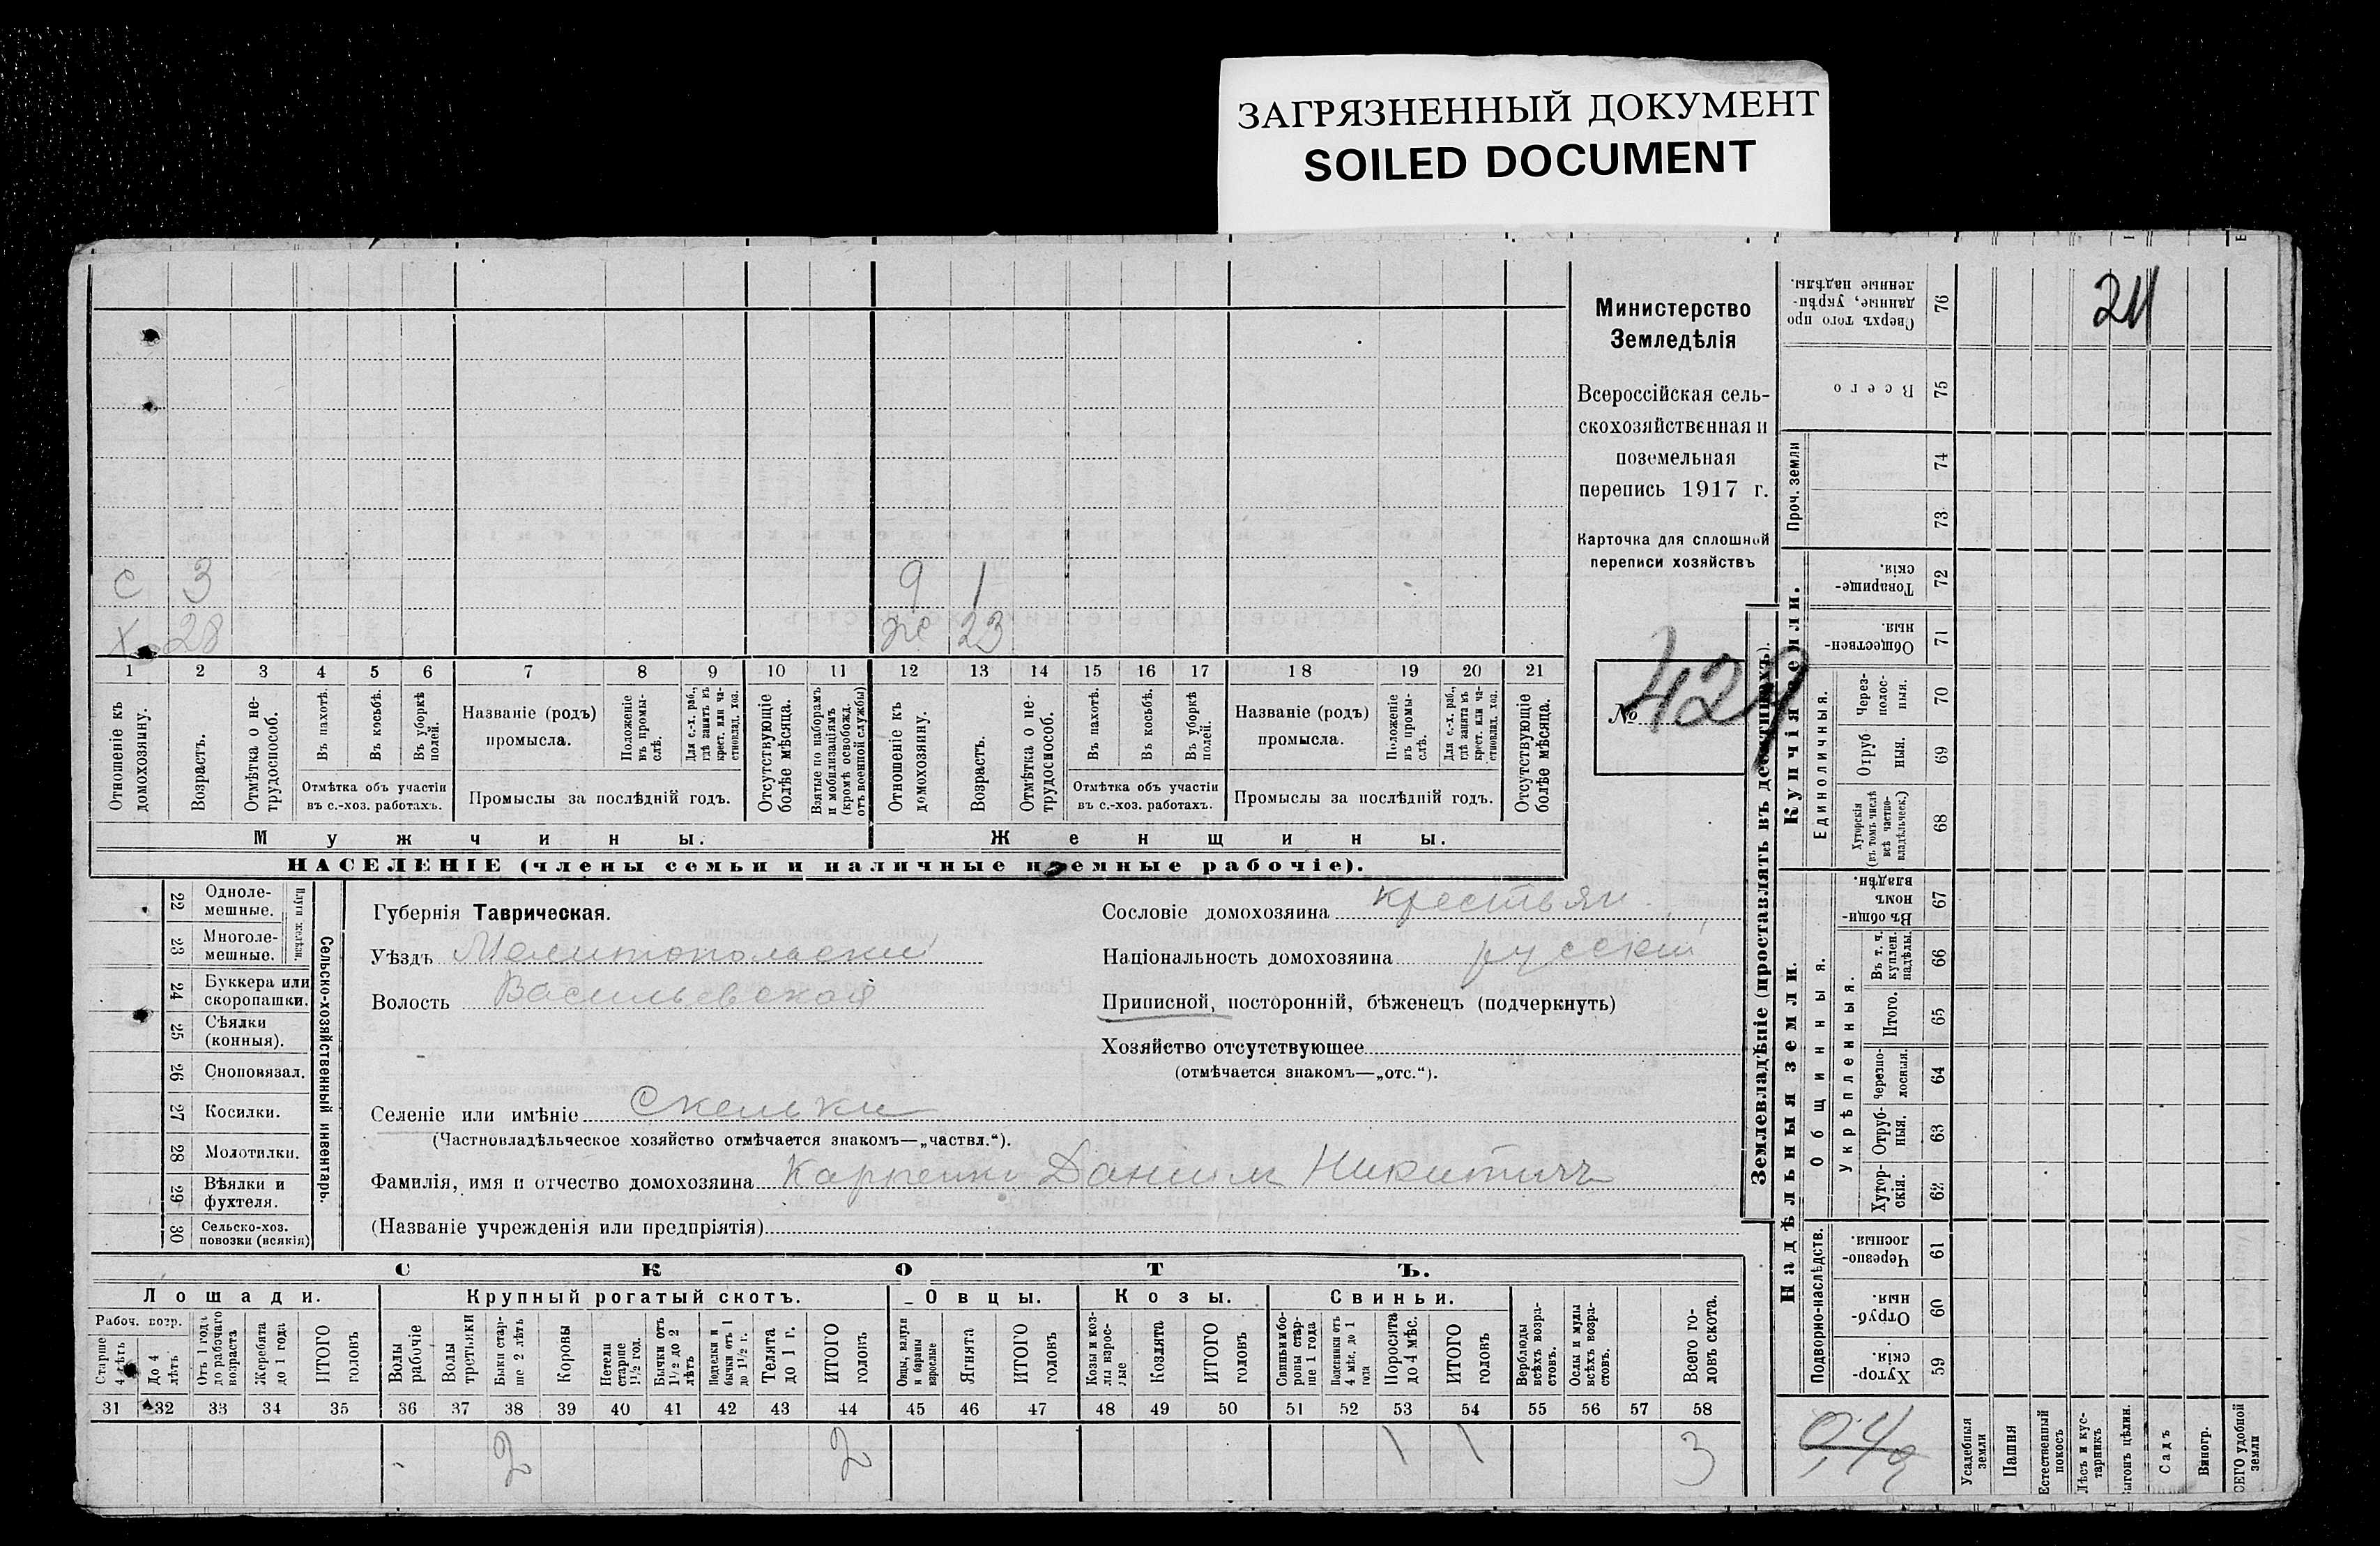 ЗАГРЯЗНЕННЫЙ ДОКУМЕНТ
SOILED DOCUMENT
Министерство
Земледѣлія
Всероссійская сель-
скохозяйственная и
поземельная
перепись 1917 г.
Карточка для сплошной
переписи хозяйствъ
№ 424
с 3
х 28
9 1
же 23
1 2 3 4 5 6 7 8 9 10 11 12 13 14 15 16 17 18 19 20 21
Отношеніе къ домохозяину.
Возрастъ.
Отмѣтка о не-трудоспособ.
Въ пахотѣ.
Въ косьбѣ.
Въ уборкѣ полей.
Отмѣтка объ участіи
въ с.-хоз. работахъ.
Названіе (родъ)
промысла.
Положеніе въ промы-слѣ.
Для с.-х. раб., гдѣ занятъ въ крест. или ча-стновлад. хоз.
Промыслы за послѣдній годъ.
Отсутствующіе болѣе мѣсяца.
Взятые по наборамъ и мобилизаціямъ (кромѣ освобожд. отъ военной службы)
Отношеніе къ домохозяину.
Возрастъ.
Отмѣтка о не-трудоспособ.
Въ пахотѣ.
Въ косьбѣ.
Въ уборкѣ полей.
Отмѣтка объ участіи
въ с.-хоз. работахъ.
Названіе (родъ)
промысла.
Положеніе въ промы-слѣ.
Для с.-х. раб., гдѣ занята въ крест. или ча-стновлад. хоз.
Промыслы за послѣдній годъ.
Отсутствующіе болѣе мѣсяца.
Мужчины.
Женщины.
НАСЕЛЕНІЕ (члены семьи и наличные наемные рабочіе).
22 Одноле-мешные.
23 Многоле-мешные.
Плуги желѣзн.
24 Буккера или скоропашки.
25 Сѣялки (конныя).
26 Сноповязал.
27 Косилки.
28 Молотилки.
29 Вѣялки и фухтеля.
30 Сельско-хоз. повозки (всякія)
Сельско-хозяйственный инвентарь.
Губернія Таврическая.
Уѣздъ Мелитопольский
Волость Васильевской
Сословіе домохозяина крестьян
Національность домохозяина русский
Приписной, посторонній, бѣженецъ (подчеркнуть)
Хозяйство отсутствующее
(отмѣчается знакомъ—„отс.“).
Селеніе или имѣніе Скельки
(Частновладѣльческое хозяйство отмѣчается знакомъ—„частвл.“).
Фамилія, имя и отчество домохозяина Карпенко Даниил Никитичъ
(Названіе учрежденія или предпріятія)
СКОТЪ.
Лошади.
Крупный рогатый скотъ.
Овцы.
Козы.
Свиньи.
Рабоч. возр.
Старше 4 лѣтъ
До 4 лѣтъ
Отъ 1 года до рабочаго возраста
Жеребята до 1 года
ИТОГО головъ
Волы рабочіе
Волы третьяки
Быки стар-ше 2 лѣтъ
Коровы
Нетели старше 1½ год.
Бычки отъ 1½ до 2 лѣтъ
Подтелки и бычки отъ 1 до 1½ г.
Телята до 1 г.
ИТОГО головъ
Овцы, валухи и бараны взрослые
Ягнята
ИТОГО головъ
Козы и коз-лы взрос-лые
Козлята
ИТОГО головъ
Свиньи и бо-ровы стар-ше 1 года
Подсвинки отъ 4 мѣс. до 1 года
Поросята до 4 мѣс.
ИТОГО головъ
Верблюды всѣхъ возра-стовъ.
Ослы и мулы всѣхъ возра-стовъ.
Всего го-ловъ скота.
31 32 33 34 35 36 37 38 39 40 41 42 43 44 45 46 47 48 49 50 51 52 53 54 55 56 57 58
2 2 1 1 3
Землевладѣніе (проставлять въ десятинахъ).
Купчія земли.
Надѣльныя земли.
24
76 Сверхъ того про-данные, укрѣп-ленные надѣлы.
75 Всего
Проч. земли
74
73
72 Товарище-скія.
71 Обществен-ныя.
Единоличныя.
70 Через-полос-ныя.
69 Отруб-ныя.
68 Хуторскія (въ томъ числѣ всѣ частно-владѣльческ.)
67 Въ общи-номъ владѣн.
Общинныя.
Укрѣпленныя.
66 Въ т. ч. куплен. надѣлы.
65 Итого.
64 Черезпо-лосныя.
63 Отруб-ныя.
62 Хутор-скія.
Подворно-наслѣдств.
61 Черезпо-лосныя.
60 Отруб-ныя.
59 Хутор-скія.
Усадебныя земли
Пашня
Естественный покосъ
Лѣсъ и кус-тарникъ
Выгонъ цѣлин.
Садъ
Виногр.
ВСЕГО удобной земли